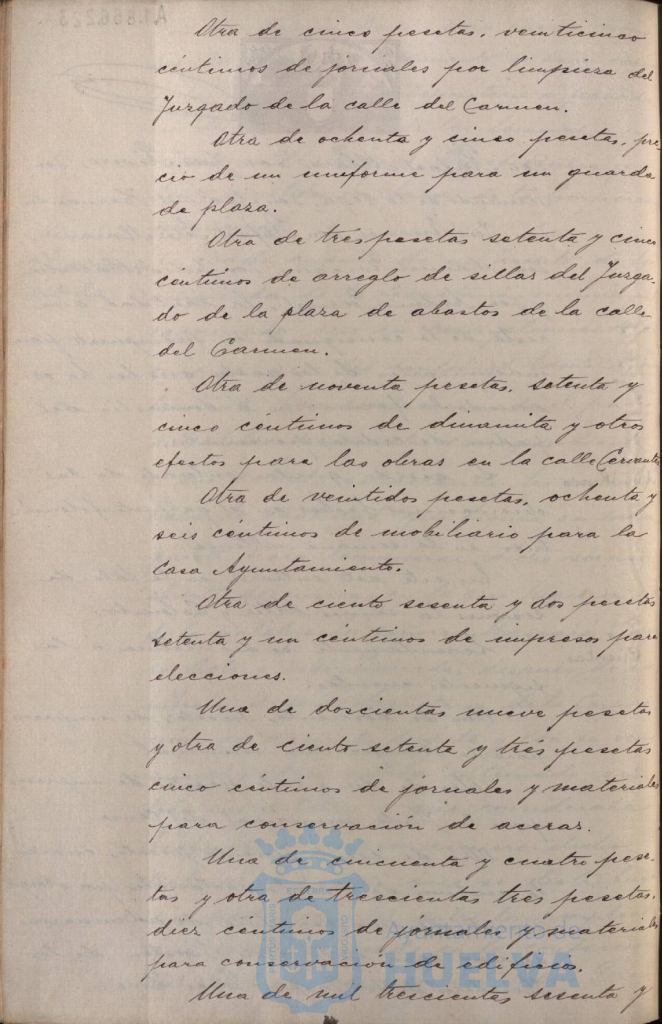 Otra de cinco pesetas, veinticinco
céntimos de jornales por limpieza del
Juzgado de la calle del Carmen.
Otra de ochenta y cinco pesetas, pre
cio de un uniforme para un guarda
de plaza.
Otra de tres pesetas setenta y cinco
céntimos de arreglo de sillas del Juzga-
do de la plaza de abastos de la calle
del Carmen.
Otra de noventa pesetas, setenta y
cinco céntimos de dinamita y otros
efectos para las obras en la calle Cervantes
Otra de veintidos pesetas, ochenta y
seis céntimos de mobiliario para la
Casa Ayuntamiento.
Otra de ciento sesenta y dos pesetas
setenta y un céntimos de impresos para
elecciones.
Una de doscientas nueve pesetas
y otra de ciento setenta y trés pesetas
cinco céntimos de jornales y materiales
para conservación de aceras.
Una de cincuenta y cuatro pese-
tas y otra de trescientas trés pesetas,
diez céntimos de jornales y materiales
para conservacion de edificios.
Una de mil trescientas sesenta y
Ayuntamiento de
HUELVA